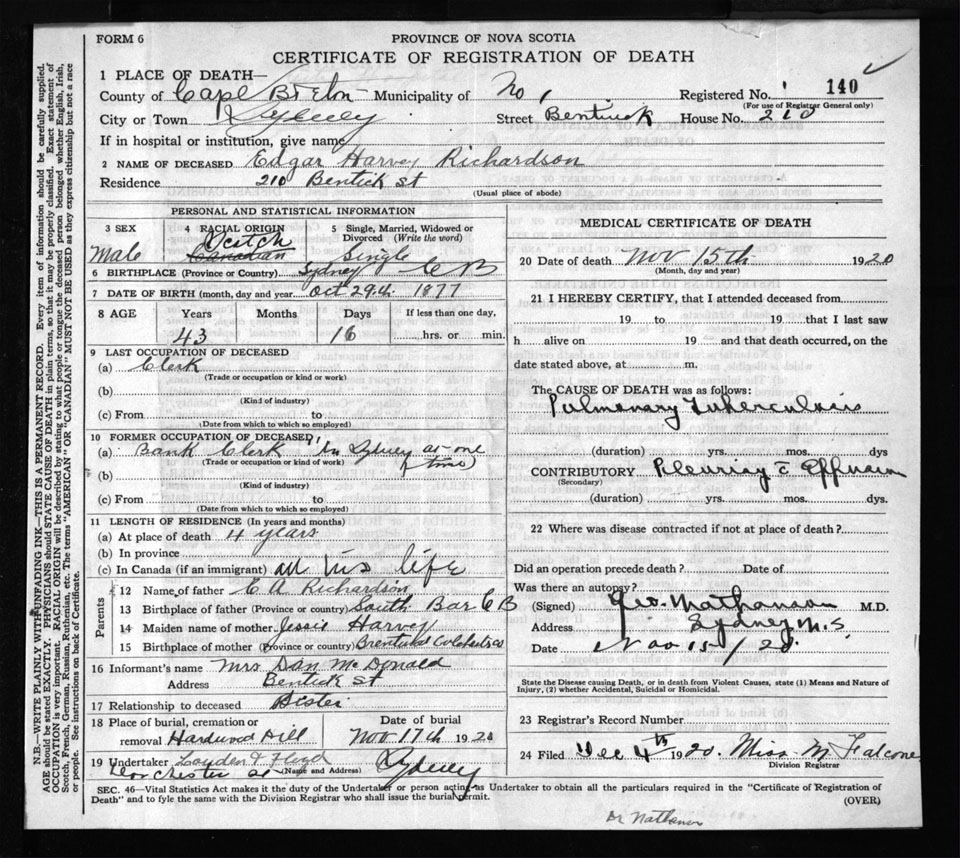 FORM 6
PROVINCE OF NOVA SCOTIA
CERTIFICATE OF REGISTRATION OF DEATH
1 PLACE OF DEATH—
County of Cape Breton Municipality of No 1 Registered No. 140
(For use of Registrar General only)
City or Town Sydney Street Bentinck House No. 210
If in hospital or institution, give name
2 NAME OF DECEASED Edgar Harvey Richardson
Residence 210 Bentick St
(Usual place of abode)
PERSONAL AND STATISTICAL INFORMATION
3 SEX 4 RACIAL ORIGIN 5 Single, Married, Widowed or Divorced (Write the word)
Male Scotch Canadian Single
6 BIRTHPLACE (Province or Country) Sydney C B
7 DATE OF BIRTH (month, day and year) Oct 29th 1877
8 AGE Years Months Days If less than one day,
43 16 hrs. or min.
9 LAST OCCUPATION OF DECEASED
(a) Clerk
(Trade or occupation or kind or work)
(b)
(Kind of industry)
(c) From to
(Date from which to which so employed)
10 FORMER OCCUPATION OF DECEASED
(a) Bank Clerk in Sydney at one time
(Trade or occupation or kind of work)
(b)
(Kind of industry)
(c) From to
(Date from which to which so employed)
11 LENGTH OF RESIDENCE (In years and months)
(a) At place of death 4 years
(b) In province
(c) In Canada (if an immigrant) all his life
Parents
12 Name of father C A Richardson
13 Birthplace of father (Province or country) South Bar C B
14 Maiden name of mother Jessie Harvey
15 Birthplace of mother (Province or country)
16 Informant's name Mrs Dan McDonald
Address Bentick St
17 Relationship to deceased Sister
18 Place of burial, cremation or Date of burial
removal Hardwood Hill Nov 17th 1920
19 Undertaker Lloyd
Dorchester St (Name and Address) Sydney
MEDICAL CERTIFICATE OF DEATH
20 Date of death Nov 15th 1920
(Month, day and year)
21 I HEREBY CERTIFY, that I attended deceased from
19 to 19 that I last saw
h alive on 19 and that death occurred, on the
date stated above, at m.
The CAUSE OF DEATH was as follows:
Pulmonary Tuberculosis
(duration) yrs. mos. dys
CONTRIBUTORY Pleurisy c Effusion
(Secondary)
(duration) yrs. mos. dys.
22 Where was disease contracted if not at place of death?
Did an operation precede death? Date of
Was there an autopsy?
(Signed) Geo. Nathanson M.D.
Address Sydney N.S.
Date Nov 15/20
State the Disease causing Death, or in death from Violent Causes, state (1) Means and Nature of
Injury, (2) whether Accidental, Suicidal or Homicidal.
23 Registrar's Record Number
24 Filed Dec 4th 1920. Miss M Falcone
Division Registrar
SEC. 46—Vital Statistics Act makes it the duty of the Undertaker or person acting as Undertaker to obtain all the particulars required in the "Certificate of Registration of
Death" and to fyle the same with the Division Registrar who shall issue the burial permit. (OVER)
Dr Nathanson
N.B.—WRITE PLAINLY WITH UNFADING INK—THIS IS A PERMANENT RECORD. Every item of information should be carefully supplied.
AGE should be stated EXACTLY. PHYSICIANS should STATE CAUSE OF DEATH in plain terms, so that it may be properly classified. Exact statement of
OCCUPATION is very important. RACIAL ORIGIN will be described by stating to what people or tongue the deceased person belonged whether English, Irish,
Scotch, French, German, Russian, Ruthenian, etc. The terms "AMERICAN" OR "CANADIAN" MUST NOT BE USED as they express citizenship but not a race
or people. See instructions on back of Certificate.